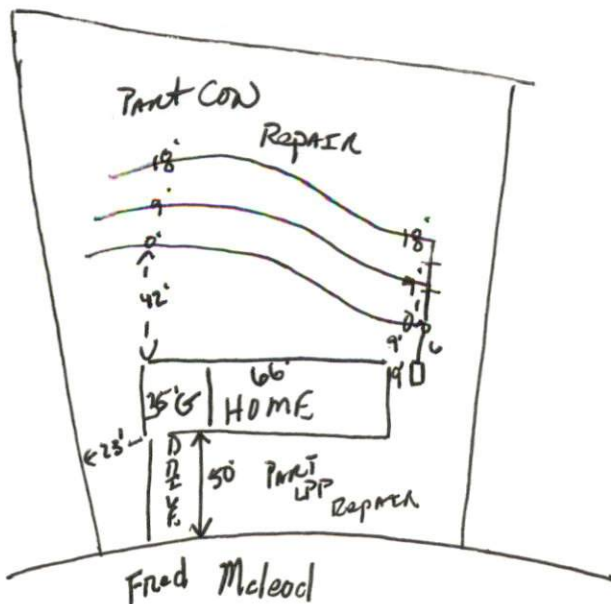 PART CON
REPAIR
18'
9'
0'
18'
9'
0'
42'
9'
6
9'
66'
G
HOME
23'
DRIVE
50'
PART
LPP
REPAIR
Fred Mcleod